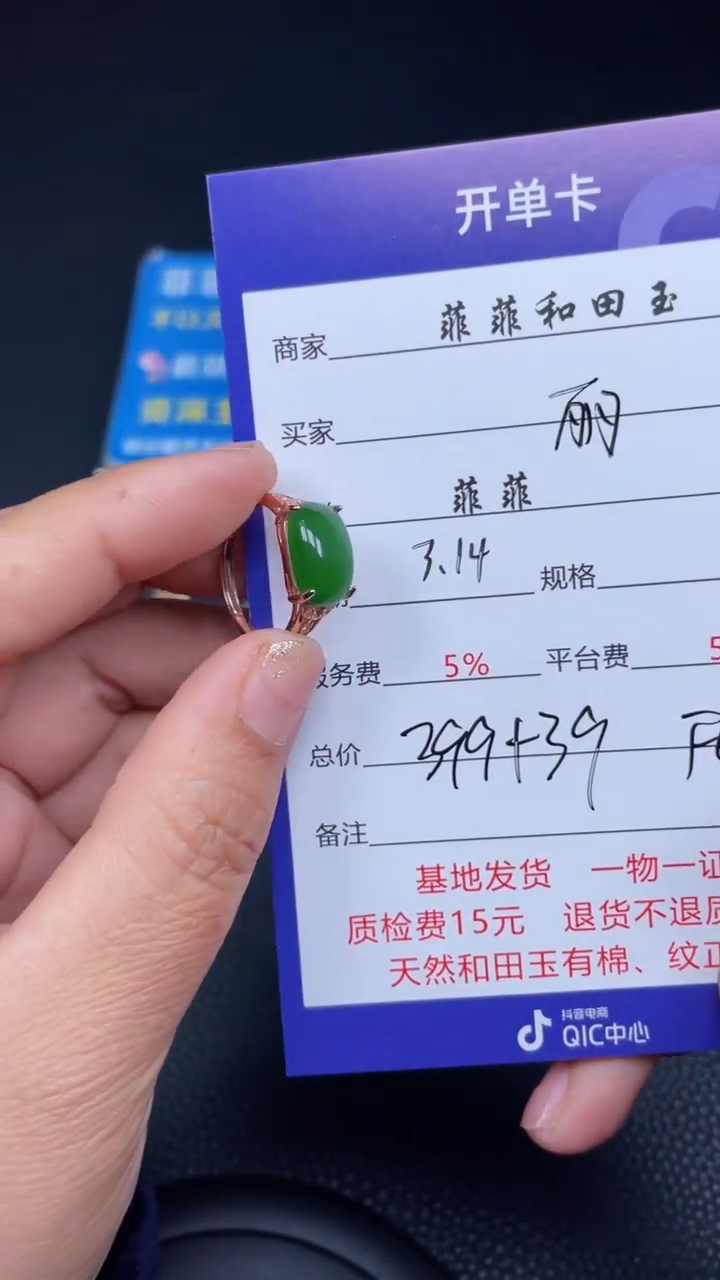 开单卡
商家 菲菲和田玉
买家 丽
菲菲
3.14 规格
务费 5% 平台费 5
总价 299+39
备注
基地发货 一物一证
质检费15元 退货不退质
天然和田玉有棉、纹正
抖音电商
QIC中心